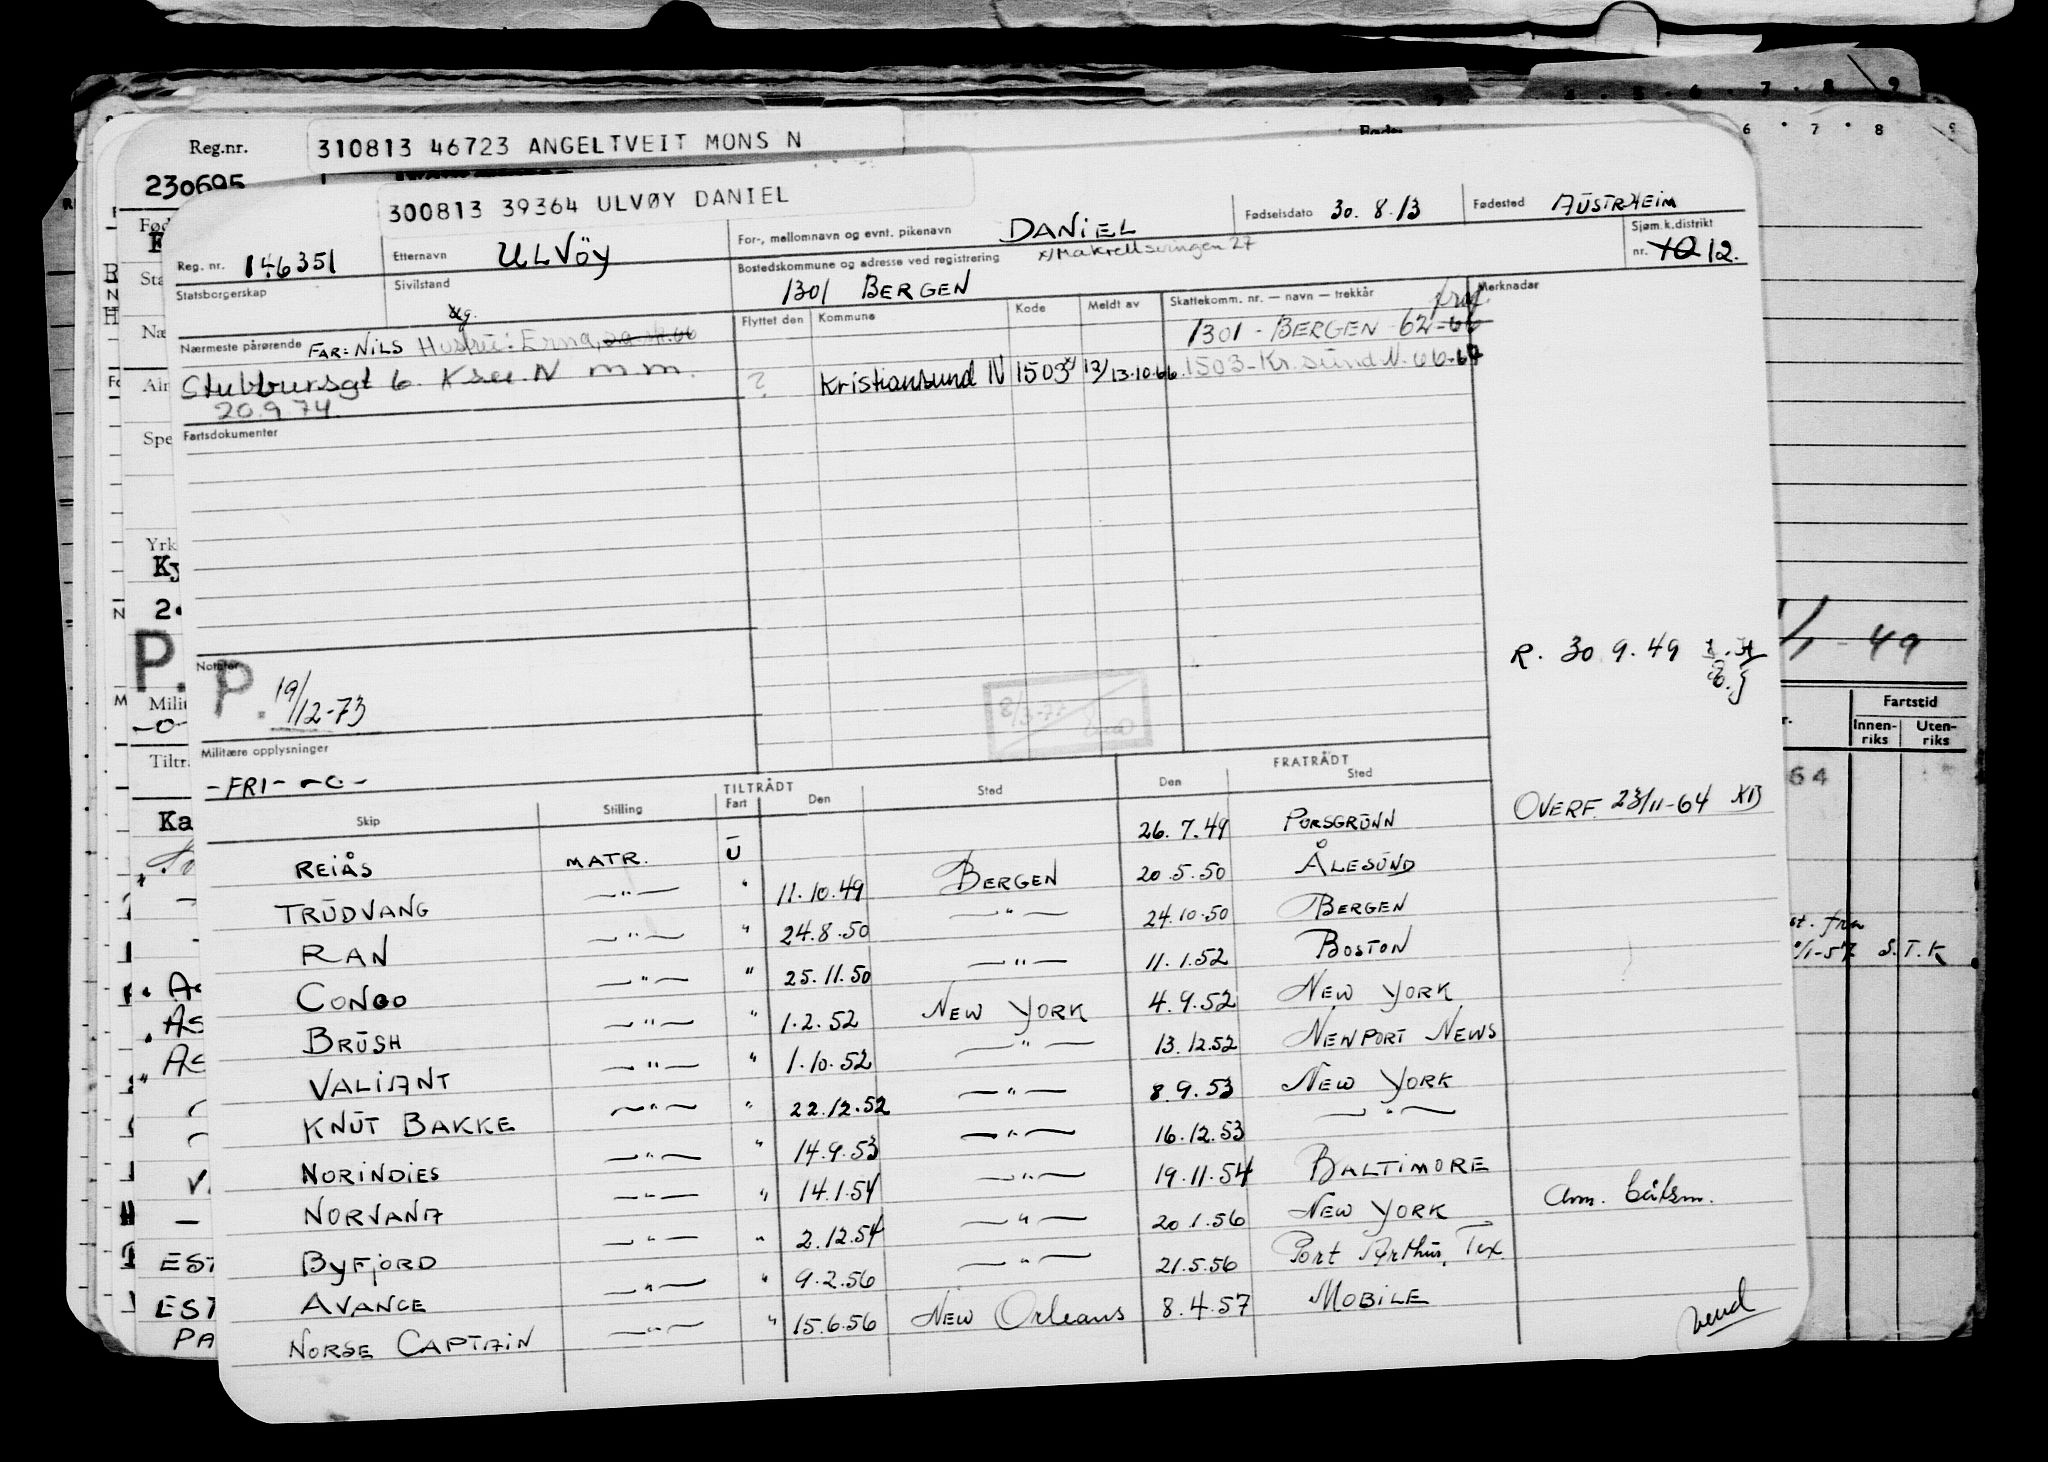 Reg.nr.
310813 46723 ANGELTVEIT MONS N
230695
300813 39364 ULVØY DANIEL
Reg. nr. 146351
Etternavn ULVöy
For-, mellomnavn og evnt. pikenavn DANIEL
Fødselsdato 30. 8. 13
Fødested AUSTRHEIM
Statsborgerskap
Sivilstand
Ug.
Bostedskommune og adresse ved registrering x/Makrellsvingen 27
1301 BERGEN
Sjøm.k.distrikt
nr. 10 12.
Nærmeste pårørende FAR: NILS Hustru: Erna,
Stubbursgt 6. Ksu. N m m.
20.9 74.
Flyttet den Kommune Kode Meldt av Skattekomm. nr. — navn — trekkår Merknader
1301 - BERGEN 62-66
? Kristiansund N 1503 x) 13/13.10.66. 1503-Kr.sund N. 66-67
Fartsdokumenter
Notater
P. 19/12-73
R. 30.9.49
Militære opplysninger
-FRI- -o-
OVERF. 23/11-64
TILTRÅDT FRATRÅDT
Skip Stilling Fart Den Sted Den Sted
REIÅS MATR. U 26.7.49 PORSGRUNN
TRUDVANG —"— " 11.10.49 BERGEN 20.5.50 ÅLESUND
RAN —"— " 24.8.50 —"— 24.10.50 BERGEN
CONGO —"— " 25.11.50 —"— 11.1.52 BOSTON
BRUSH —"— " 1.2.52 NEW YORK 4.9.52 NEW YORK
VALIANT —"— " 1.10.52 —"— 13.12.52 NEWPORT NEWS
KNUT BAKKE —"— " 22.12.52 —"— 8.9.53 NEW YORK
NORINDIES —"— " 14.9.53 —"— 16.12.53 —"—
NORVANA —"— " 14.1.54 —"— 19.11.54 BALTIMORE
BYFJORD —"— " 2.12.54 —"— 20.1.56 NEW YORK Anm. båtsm.
AVANCE —"— " 9.2.56 —"— 21.5.56 Port Arthur, Tex.
NORSE CAPTAIN —"— " 15.6.56 NEW Orleans 8.4.57 MOBILE
vend
49
Fartstid
Innen-riks Uten-riks
64
S.T.K